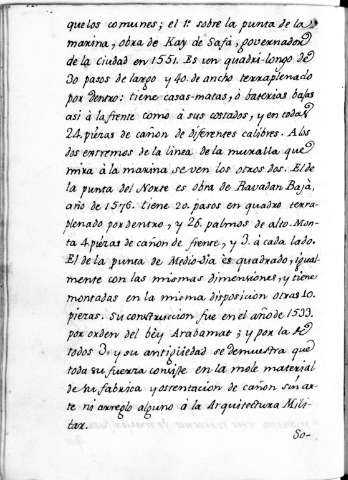 que los comunes; el 1.º sobre la punta de la
marina, obra de Kay de Safa, governador
de la Ciudad en 1551. Es un quadri-longo de
30 pasos de largo y 40. de ancho terraplenado
por dentro: tiene casas-matas, ò baterias bajas
asi à la frente como à sus costados, y en todas
24. piezas de cañon de diferentes calibres. A los
dos extremos de la linea de la muralla que
mira à la marina, se ven los otros dos. El de
la punta del Norte es obra de Ravadan Bajà,
año de 1576. tiene 20. pasos en quadro terra-
plenado por dentro, y 26. palmos de alto. Mon-
ta 4. piezas de cañon de frente, y 3. à cada lado.
El de la punta de Medio-dia es quadrado, igual-
mente con las mismas dimensiones, y tiene
montadas en la misma disposicion otras 10.
piezas. Su construccion fue en el año de 1533.
por orden del bèy Arabamat; y por la de
todos 3. y su antigüedad se demuestra que
toda su fuerza consiste en la mole material
de su fabrica y ostentacion de cañon sin ar-
te ni arreglo alguno à la Arquitectura Mili-
tar.
So-